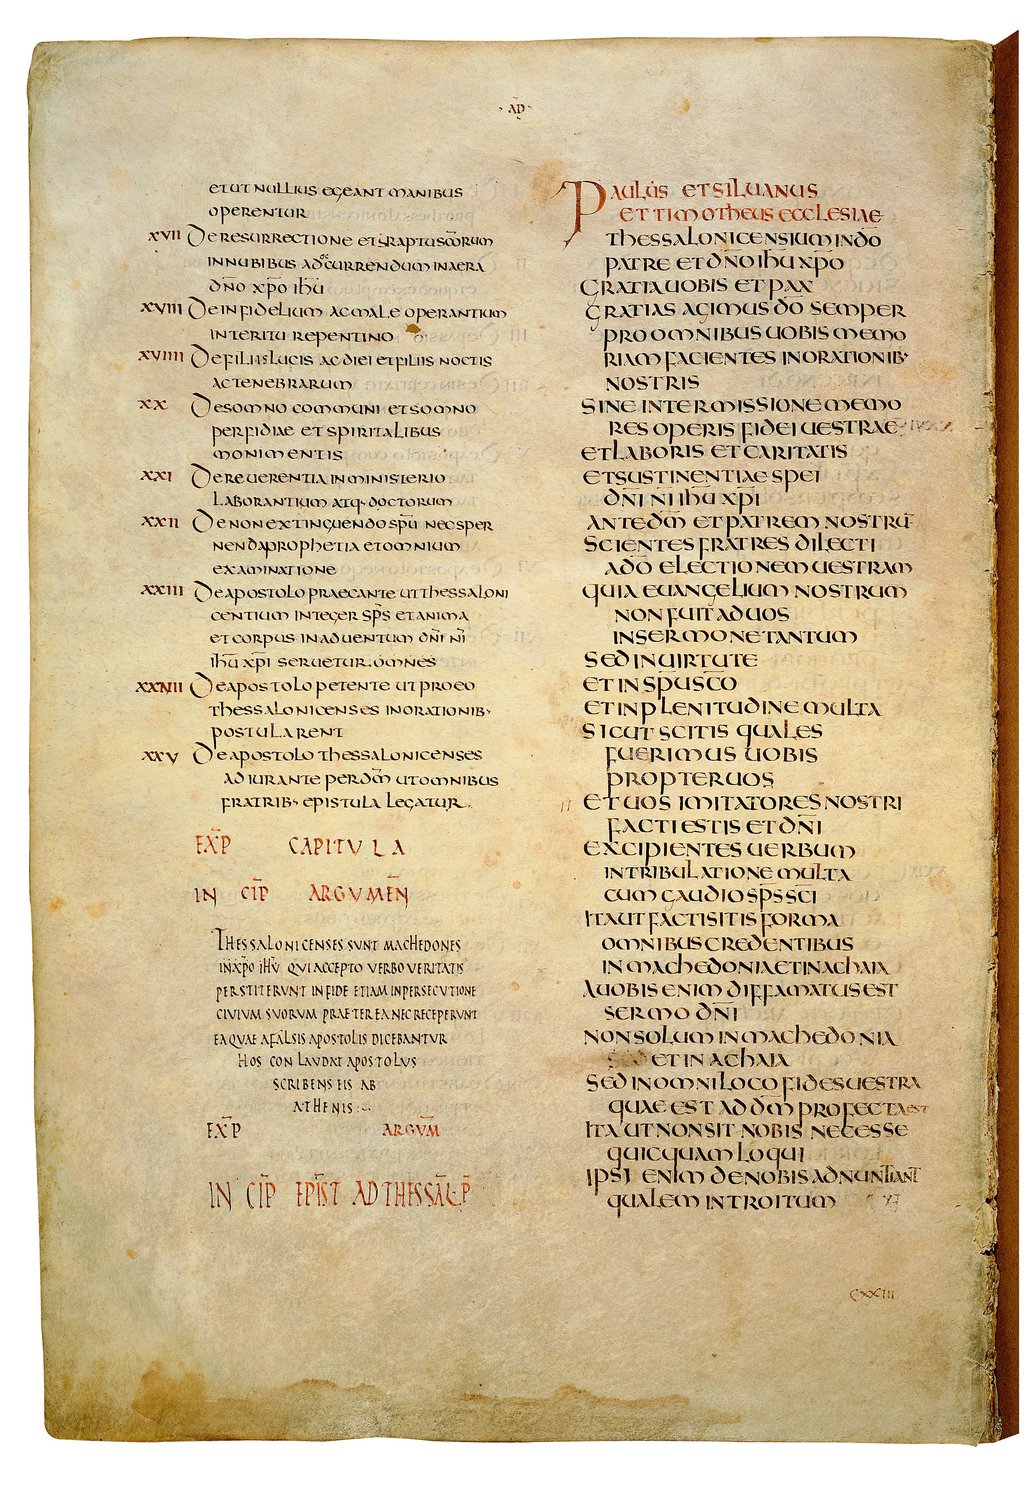 · AD ·
ET UT NULLIUS EGEANT MANIBUS
OPERENTUR
XVII DE RESURRECTIONE ET RAPTU SCŌRUM
IN NUBIBUS AD OCCURRENDUM IN AERA
DN̄O XP̄O IHŪ
XVIII DE INFIDELIUM AC MALE OPERANTIUM
INTERITU REPENTINO
XVIIII DE FILIIS LUCIS AC DIEI ET FILIIS NOCTIS
AC TENEBRARUM
XX DE SOMNO COMMUNI ET SOMNO
PERFIDIAE ET SPIRITALIBUS
MONIMENTIS
XXI DE REUERENTIA IN MINISTERIO
LABORANTIUM ATQ· DOCTORUM
XXII DE NON EXTINGUENDO SPŪ NEC SPER
NENDA PROPHETIA ET OMNIUM
EXAMINATIONE
XXIII DE APOSTOLO PRAECANTE UT THESSALONI
CENTIUM INTEGER SPS̄ ET ANIMA
ET CORPUS IN ADUENTUM DN̄I N̄I
IHŪ XP̄I SERUETUR. OMNES
XXIIII DE APOSTOLO PETENTE UT PRO EO
THESSALONICENSES IN ORATIONIB·
POSTULARENT
XXV DE APOSTOLO THESSALONICENSES
ADIURANTE PER DM̄ UT OMNIBUS
FRATRIB· EPISTULA LEGATUR
EXP̄ CAPITULA
INCIP̄ ARGUMEN̄
THESSALONICENSES SVNT MACHEDONES
IN XP̄O IHŪ QVI ACCEPTO VERBO VERITATIS
PERSTITERVNT IN FIDE ETIAM IN PERSECVTIONE
CIVIVM SVORVM PRAETEREA NEC RECEPERVNT
EA QVAE A FALSIS APOSTOLIS DICEBANTVR
HOS CONLAVDAT APOSTOLVS
SCRIBENS EIS AB
ATHENIS :~
EXP̄ ARGVM̄
INCIP̄ EPIST̄ AD THESSAL̄ · P̄
PAULUS ET SILUANUS
ET TIMOTHEUS ECCLESIAE
THESSALONICENSIUM IN DŌ
PATRE ET DN̄O IHŪ XP̄O
GRATIA UOBIS ET PAX
GRATIAS AGIMUS DŌ SEMPER
PRO OMNIBUS UOBIS MEMO
RIAM FACIENTES IN ORATIONIB·
NOSTRIS
SINE INTERMISSIONE MEMO
RES OPERIS FIDEI UESTRAE
ET LABORIS ET CARITATIS
ET SUSTINENTIAE SPEI
DN̄I N̄I IHŪ XP̄I
ANTE DM̄ ET PATREM NOSTRŪ
SCIENTES FRATRES DILECTI
A DŌ ELECTIONEM UESTRAM
QUIA EUANGELIUM NOSTRUM
NON FUIT AD UOS
IN SERMONE TANTUM
SED IN UIRTUTE
ET IN SPŪ SCŌ
ET IN PLENITUDINE MULTA
SICUT SCITIS QUALES
FUERIMUS UOBIS
PROPTER UOS
ET UOS IMITATORES NOSTRI
FACTI ESTIS ET DN̄I
EXCIPIENTES UERBUM
IN TRIBULATIONE MULTA
CUM GAUDIO SPS̄ SCĪ
ITA UT FACTI SITIS FORMA
OMNIBUS CREDENTIBUS
IN MACHEDONIA ET IN ACHAIA
A UOBIS ENIM DIFFAMATUS EST
SERMO DN̄I
NON SOLUM IN MACHEDONIA
ET IN ACHAIA
SED IN OMNI LOCO FIDES UESTRA
QUAE EST AD DM̄ PROFECTA EST
ITA UT NON SIT NOBIS NECESSE
QUICQUAM LOQUI
IPSI ENIM DE NOBIS ADNUNTIANT
QUALEM INTROITUM
CXXIII